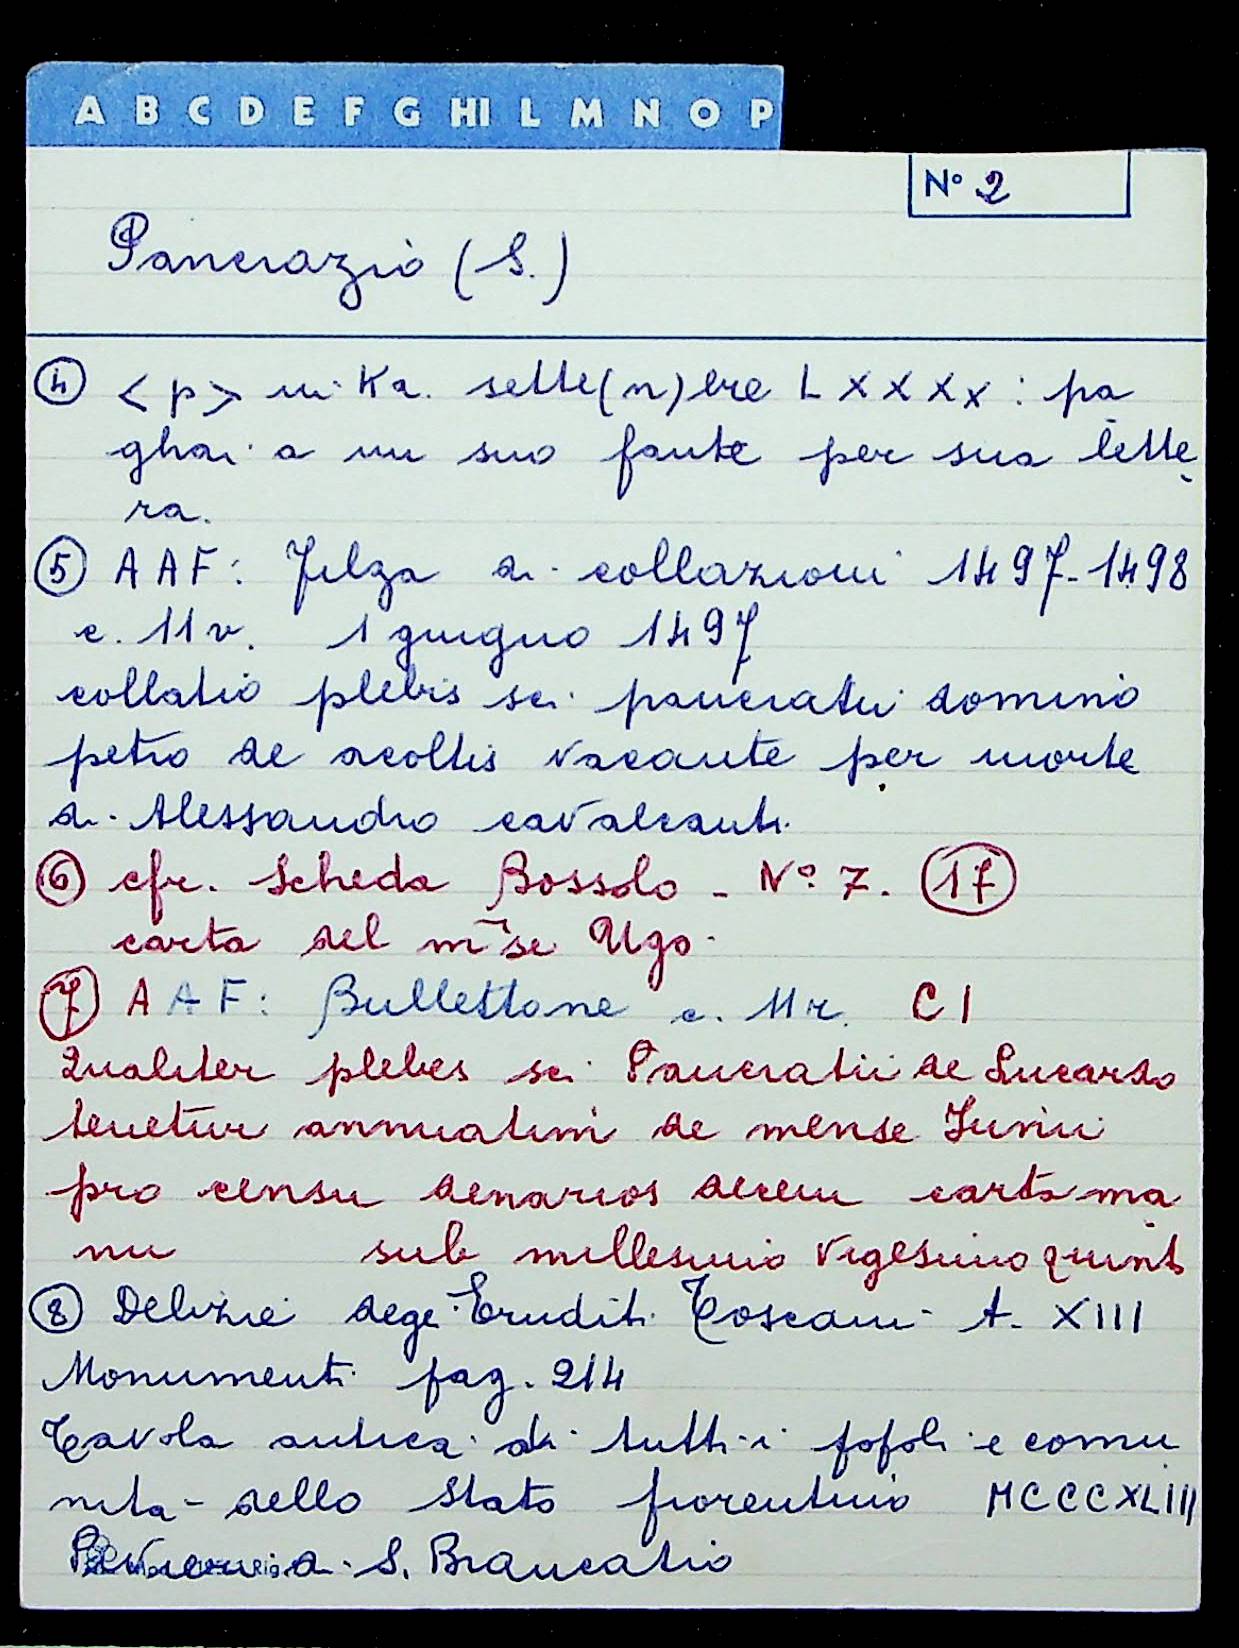 A B C D E F G HI L M N O P
Nº 2
Pancrazio (S.)
④ <p> in Ka. sette(n)bre LXXXX: pa
ghai a un suo fante per sua lette
ra.
⑤ AAF: Filza di collazioni 1497-1498
c. 11v. 1 giugno 1497
collatio plebis sci pancratii domino
petro de acoltis vacante per morte
di Alessandro cavalcanti
⑥ cfr. Scheda Bossolo - Nº 7. ⑰
carta del m~se Ugo.
⑦ AAF: Bullettone c. 11r. CI
Qualiter plebes sci Pancratii de Lucardo
tenetur annuatim de mense Junii
pro censu denarios decem carta ma
nu sub millesimo vigesimo quint
⑧ Delizie degi Eruditi Toscani t. XIII
Monumenti pag. 214
Tavola antica di tutti i popoli e comu
nità dello Stato fiorentino MCCCXLIII
a S. Brancatio